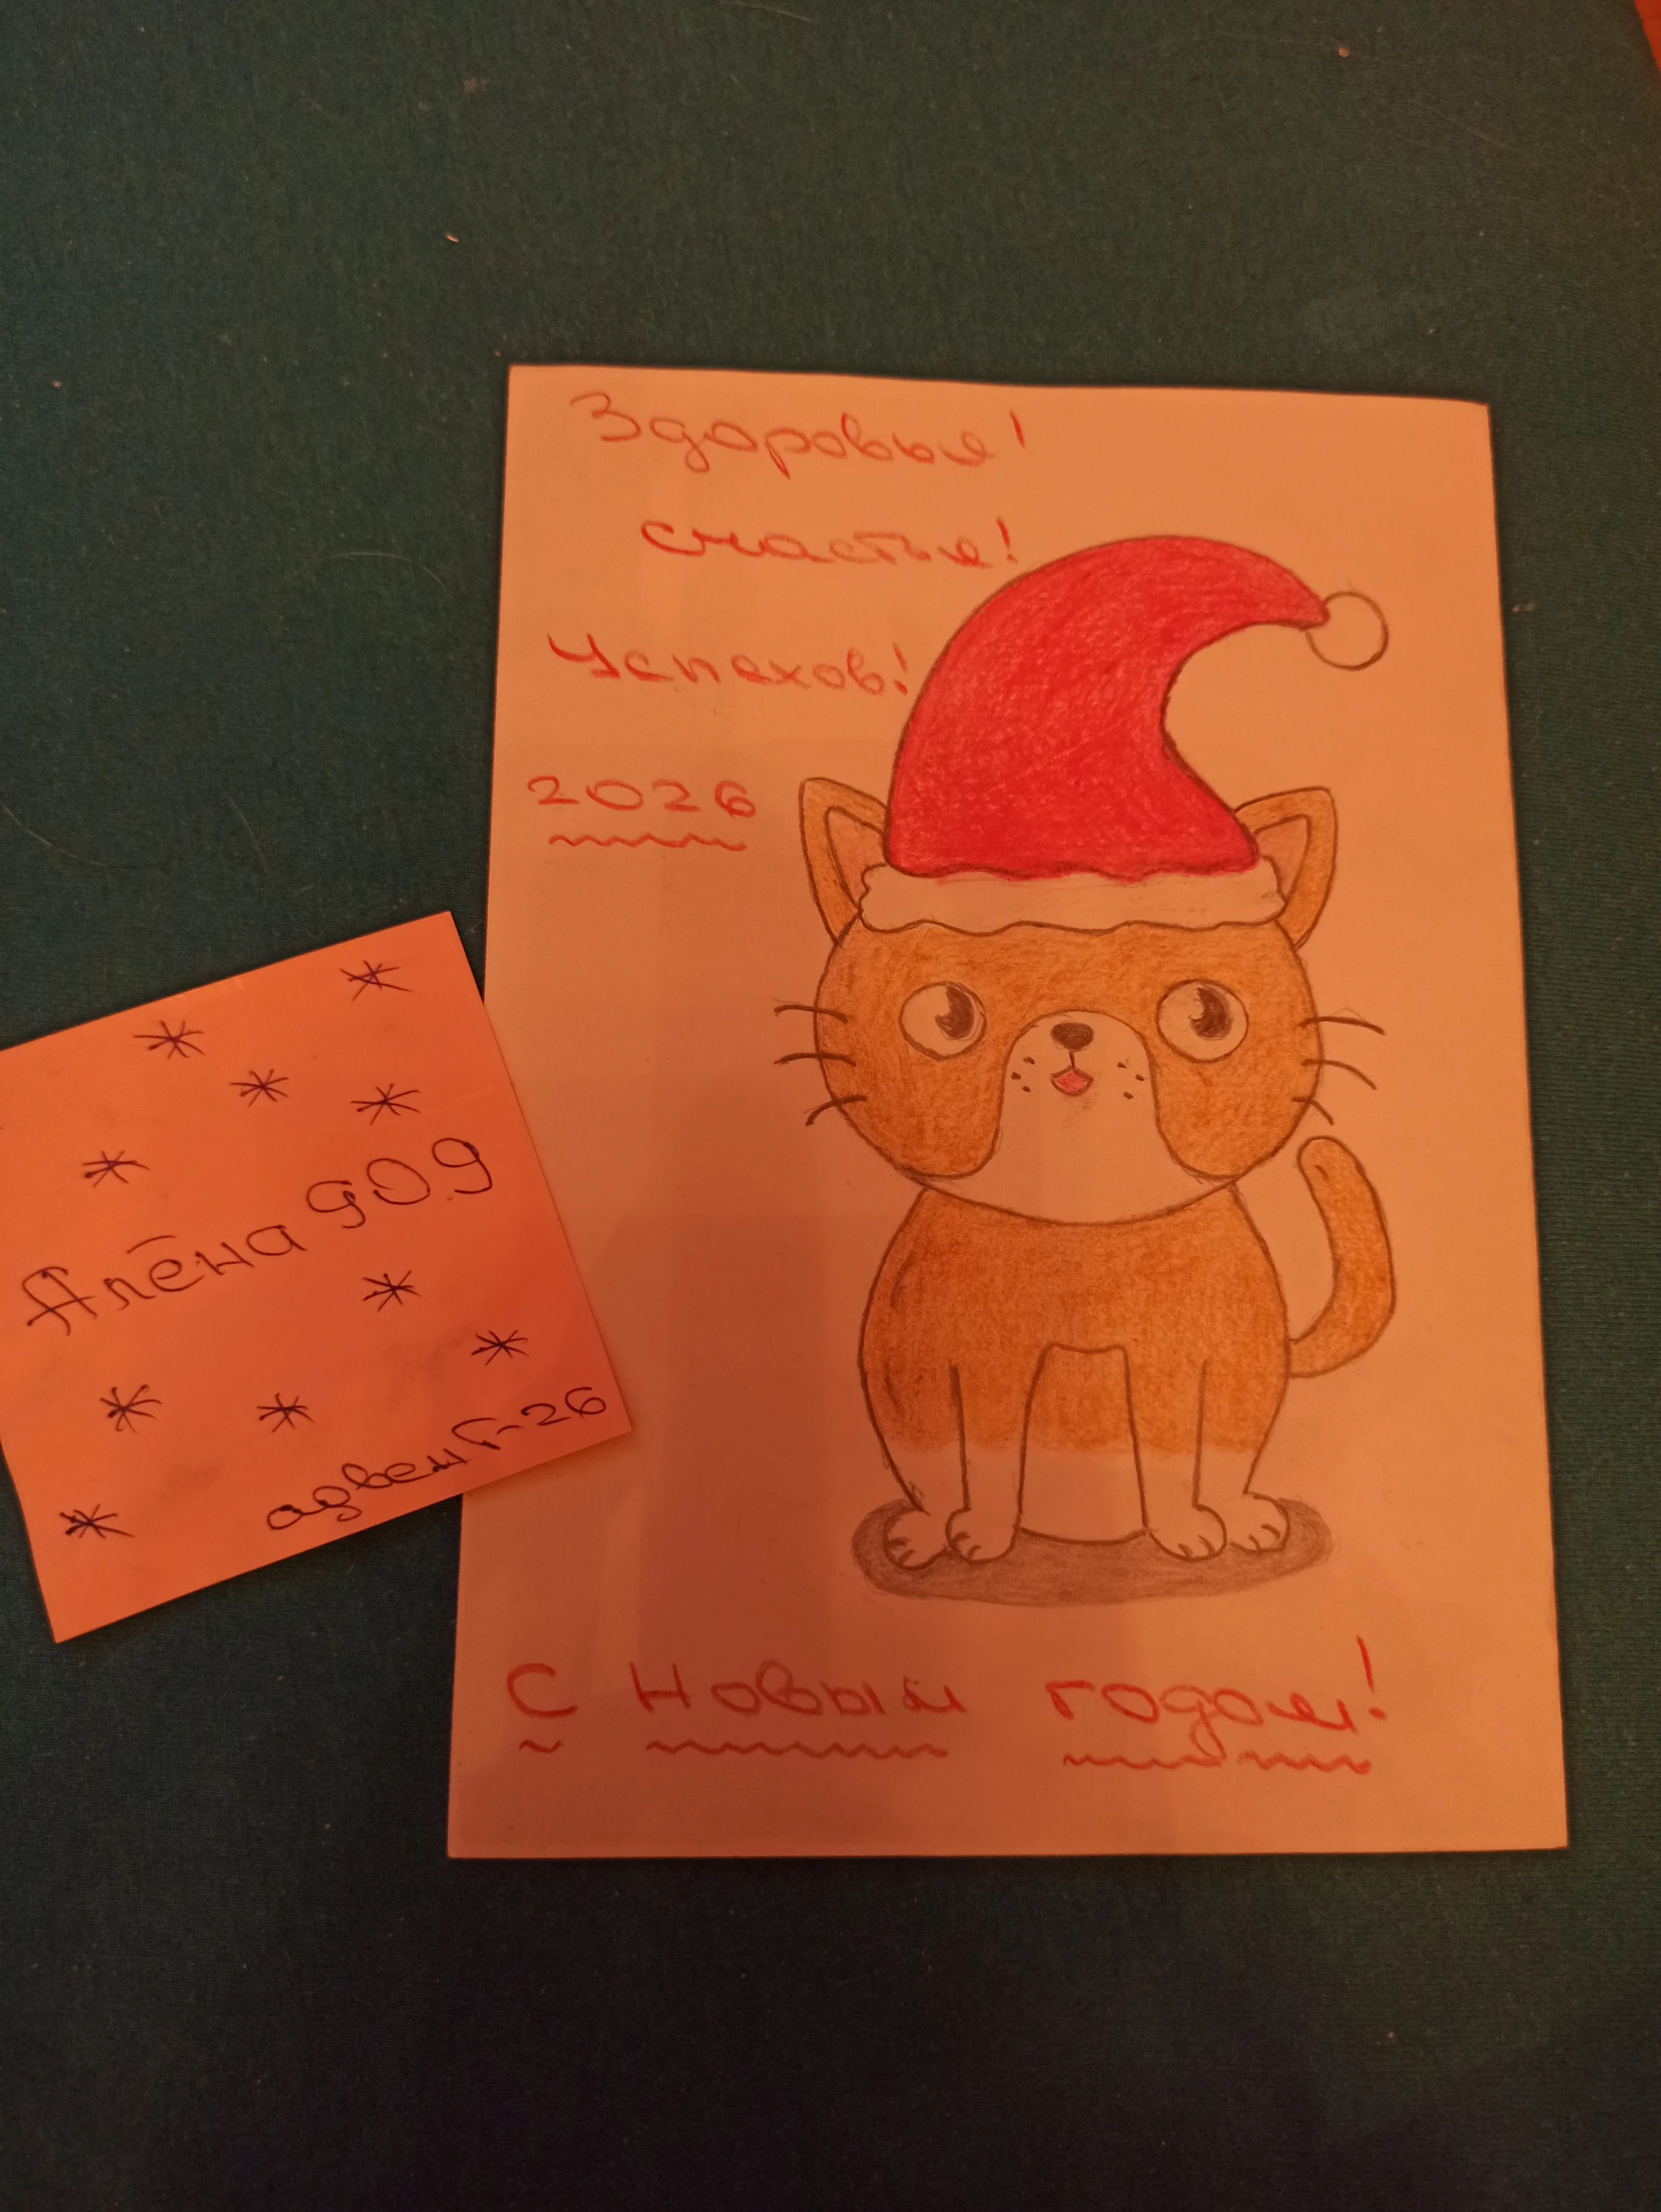 Здоровья!
счастья!
Успехов!
2026
Алёна 909
адвент-26
С Новым годом!